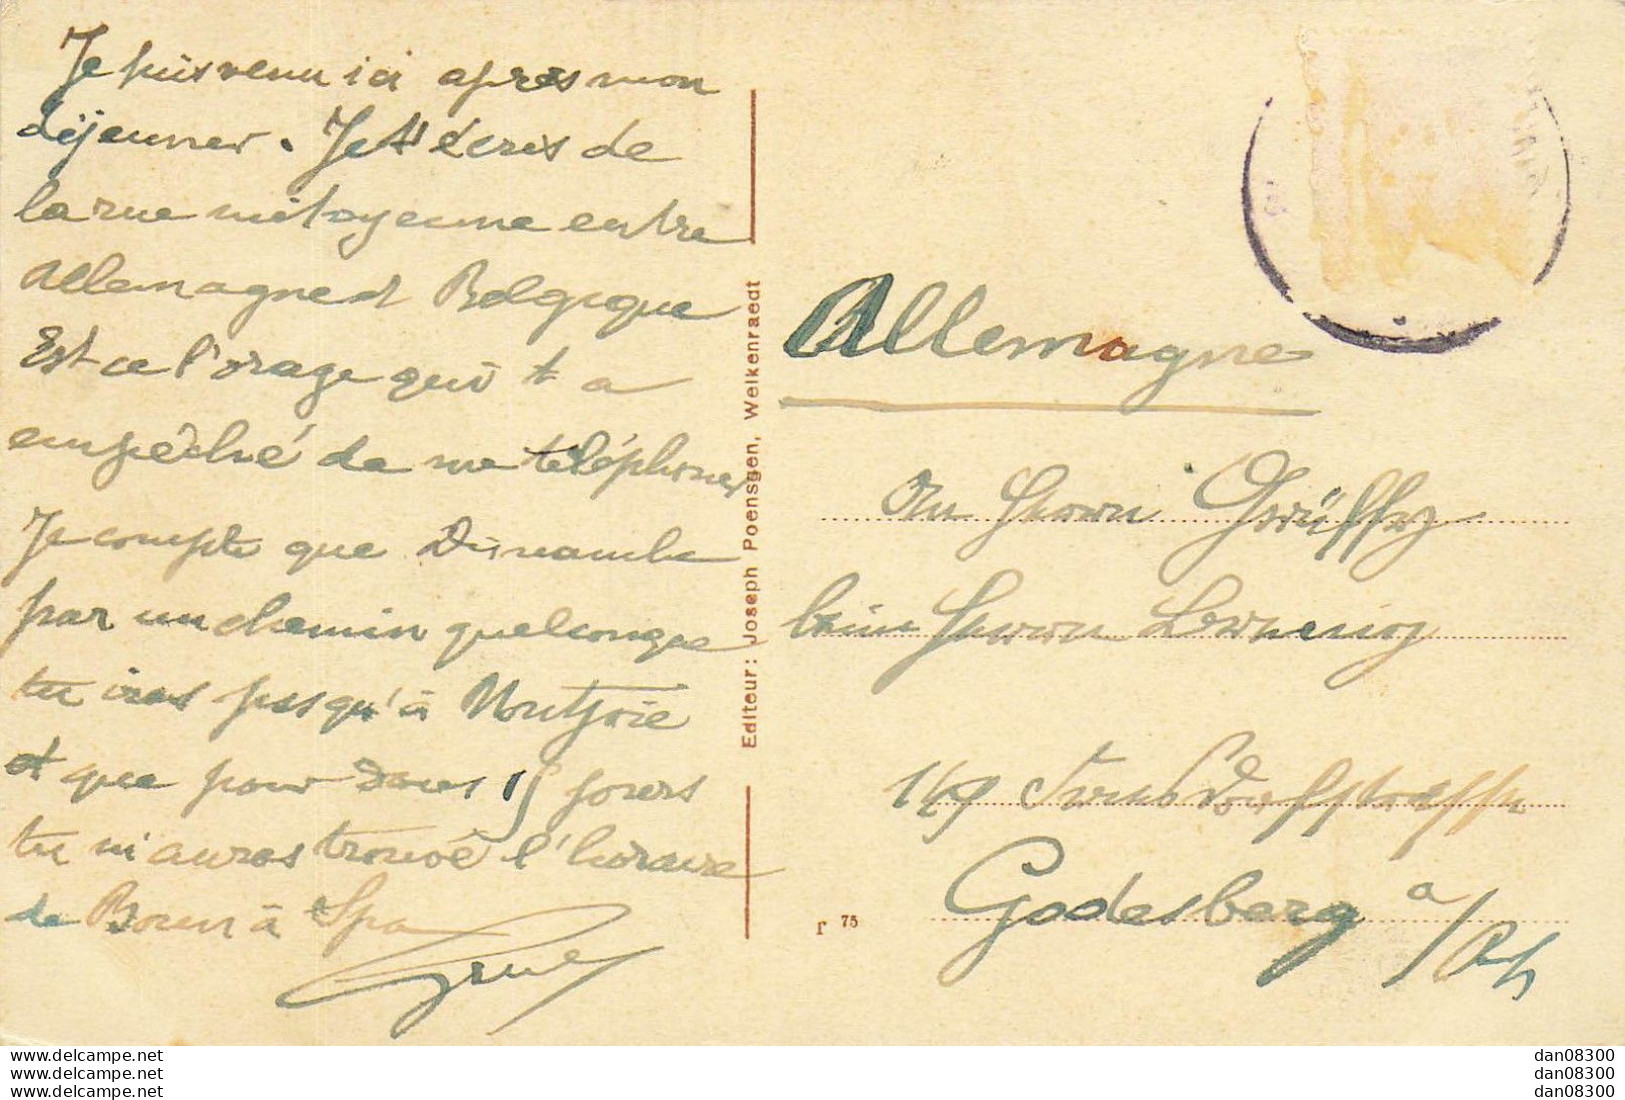 Je suis venu ici après mon
déjeuner. Je t'écris de
la rue mitoyenne entre
Allemagne et Belgique
Est-ce l'orage qui t'a
empêché de me téléphoner
Je compte que Dimanche
par un chemin quelconque
tu iras jusqu'à Montjoie
et que pour dans 15 jours
tu m'auras trouvé l'horaire
de Bonn à Spa
Editeur: Joseph Poensgen, Welkenraedt
r 75
Allemagne
An Herrn
beim Herrn
149
Godesberg a/Rh
www.delcampe.net
www.delcampe.net
www.delcampe.net
dan08300
dan08300
dan08300